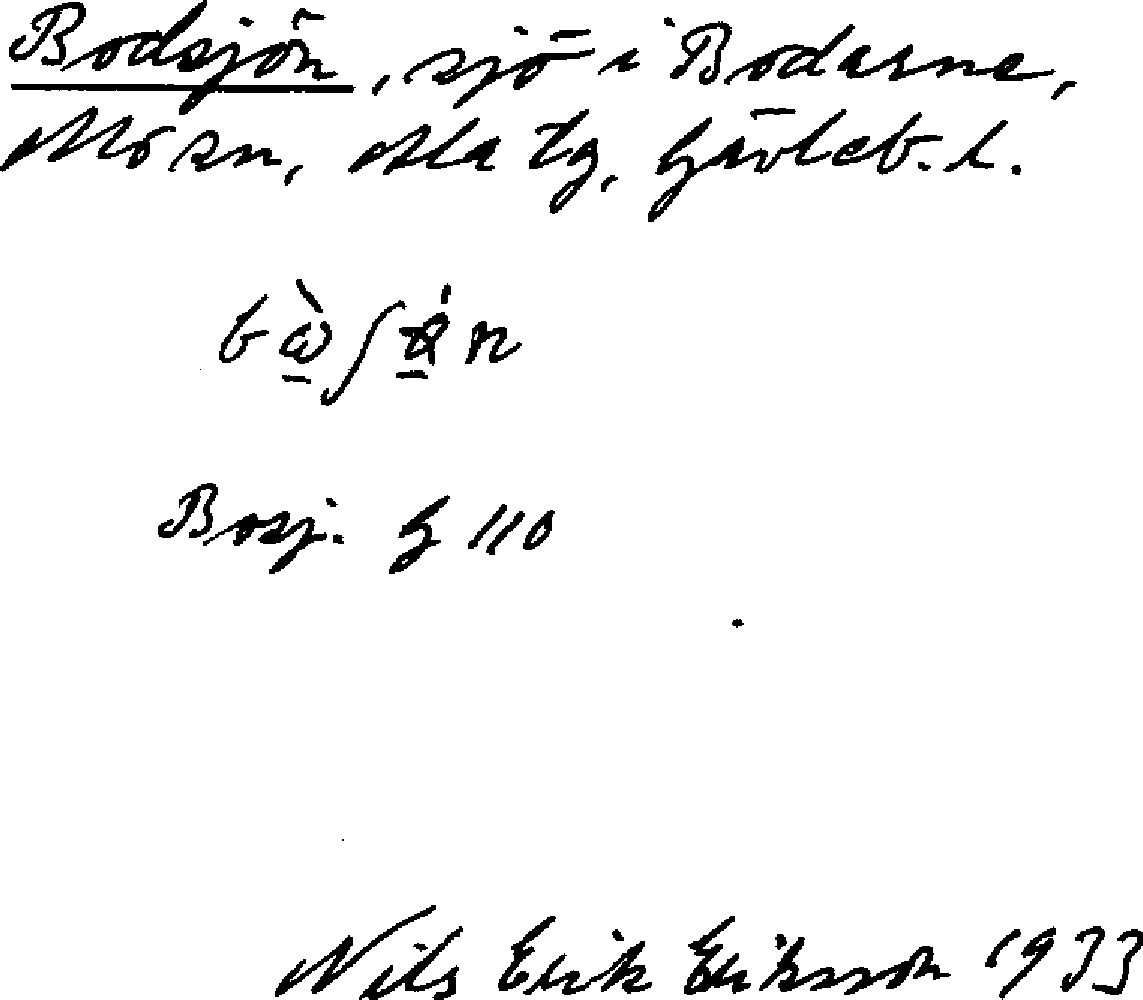 Bodsjön, sjö i Bodarne,
Mo sn, Ala tg, Gävleb. l.
Bosj. G 110
Nils Erik Eriksson 1933